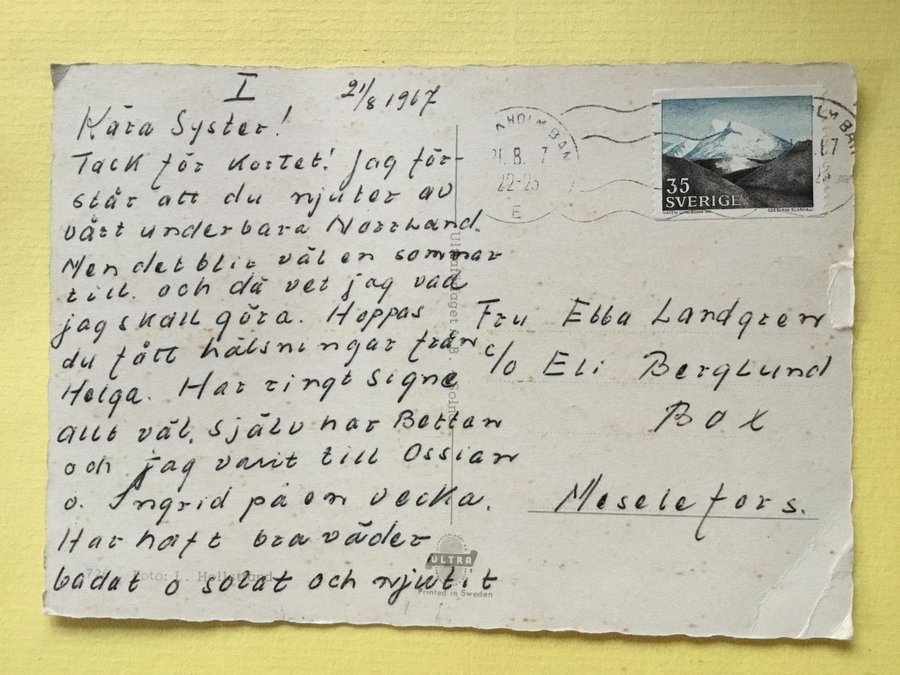 I 21/8 1967
Kära Syster!
Tack för kortet! Jag för-
står att du njuter av
vårt underbara Norrland.
Men det blir väl en sommar
till. och då vet jag vad
jag skall göra. Hoppas
du fått hälsningar från
Helga. Har ringt Signe
allt väl. själv har Bettan
och jag varit till Ossian
o. Ingrid på en vecka.
Har haft bra väder
badat o solat och njutit
Fru Ebba Landgren
c/o Eli Berglund
Box
Meselefors.
21.8. 7
22-23
E
67
35
SVERIGE
CZESLAW SLANIA
A.B. Solna
Foto: L.
ULTRA
Printed in Sweden